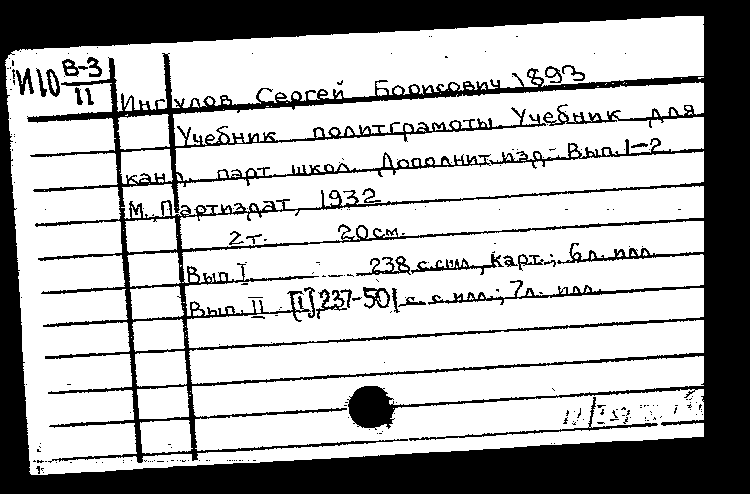 И10 В-3
11
Ингулов, Сергей Борисович 1893
Учебник политграмоты. Учебник для
канд. парт. школ. Дополнит. изд. Вып. 1-2
М., Партиздат, 1932
2т. 20см.
Вып. I. 238 с. с илл., карт.; 6л. илл.
Вып. II [1], 237-501 с. с илл.; 7л. илл.